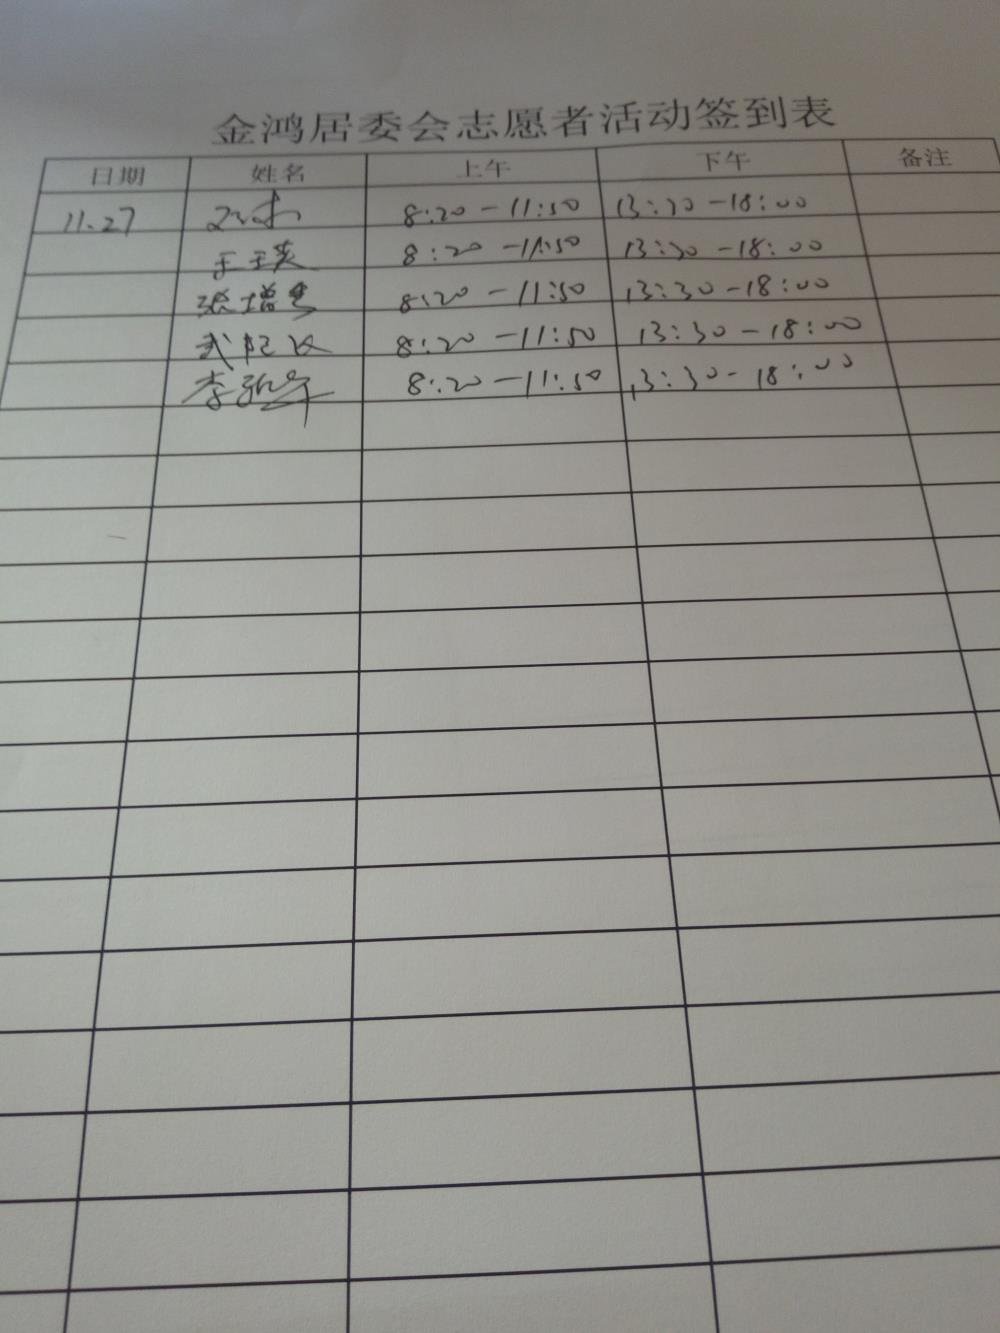 金鸿居委会志愿者活动签到表
日期 姓名 上午 下午 备注
11.27 8:20-11:50 13:30-18:00
王玉英 8:20-11:50 13:30-18:00
张增 8:20-11:50 13:30-18:00
武 8:20-11:50 13:30-18:00
李 8:20-11:50 13:30-18:00